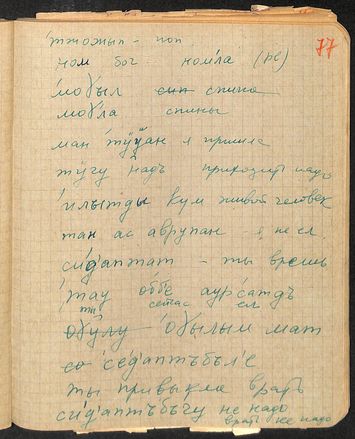 77
'тжожып - поп
ном бог номла (pl)
'моӷыл спина
моӷла спины
ман 'тӱӱан я пришла
тӱгу надъ приходить надо
'илытды кум живой человек
тан ас аврупан я не ел
сидаптат - ты врешь
'тау оббе аурсатдъ
ты сейчас ел
обулу 'обылым мат
со седаптъбъле
ты привыкла врать
сидаптъбъгу не надо
врать не надо